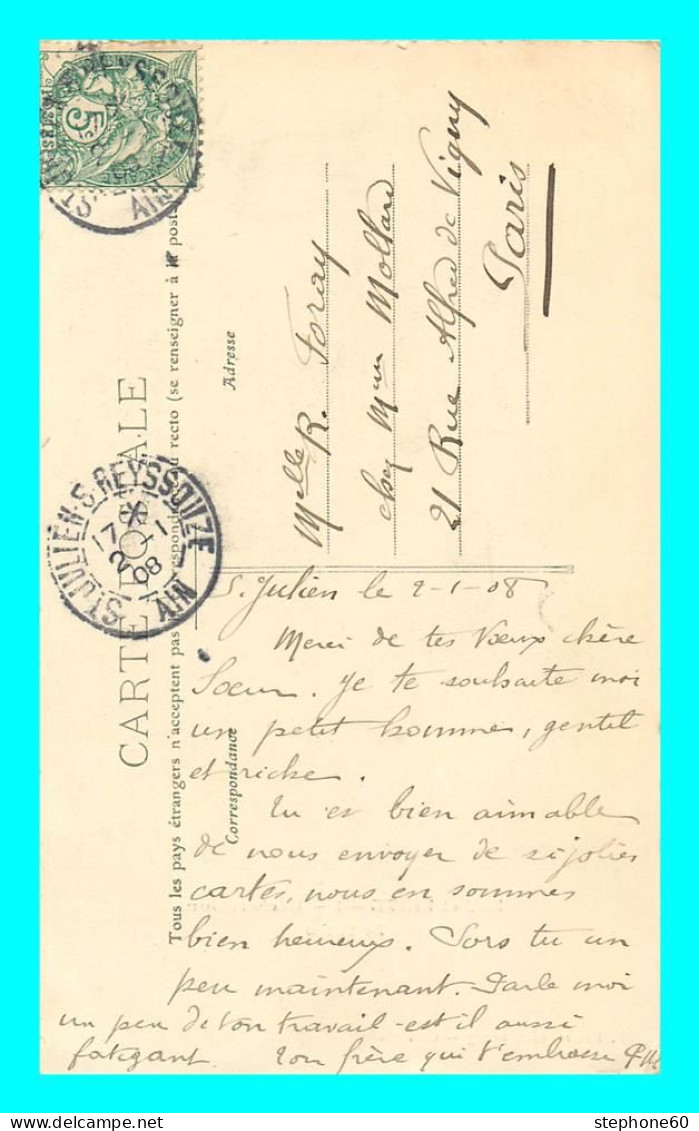 CARTE POSTALE
Tous les pays étrangers n'acceptent pas la correspondance au recto (se renseigner à la poste)
Correspondance
Adresse
5
Postes
ST JULIEN-S-REYSSOUZE
AIN
ST JULIEN-S-REYSSOUZE
17 *
2 -1
08
AIN
Melle R. Foray
chez Mme Mollard
21 Rue Alfred de Vigny
Paris
S. Julien le 2-1-08
Merci de tes Vœux chère
Soeur. Je te souhaite moi
un petit homme, gentil
et riche.
Tu es bien aimable
de nous envoyer de si jolies
cartes, nous en sommes
bien heureux. Sors tu un
peu maintenant. Parle moi
un peu de ton travail - est il aussi
fatigant. Ton frère qui t'embrasse
© stephone60